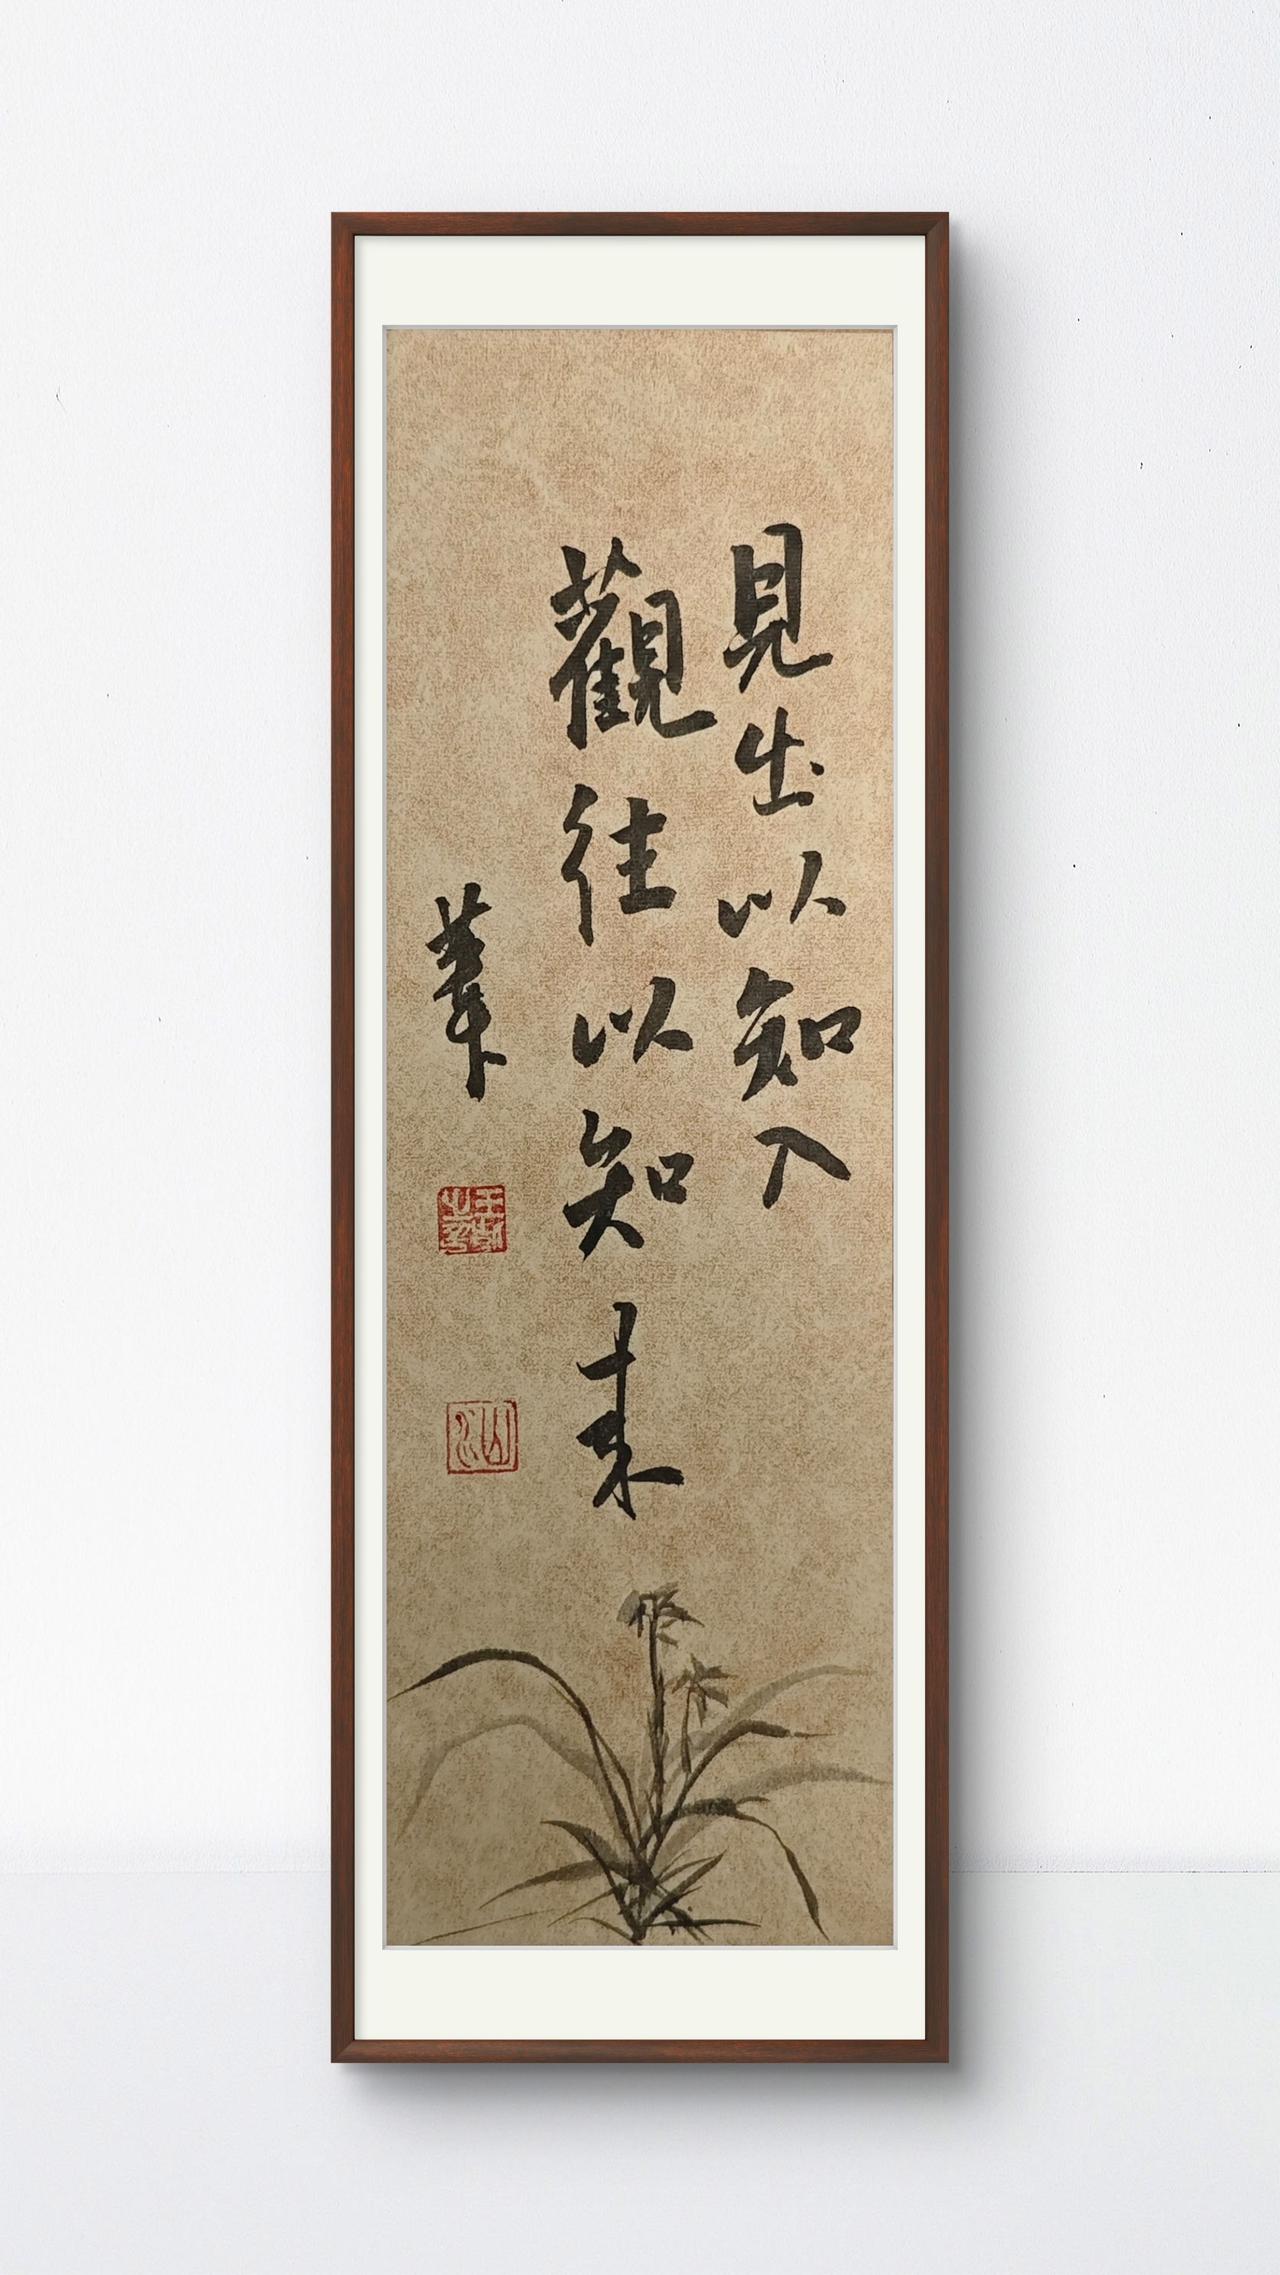 見出以知入
觀往以知來